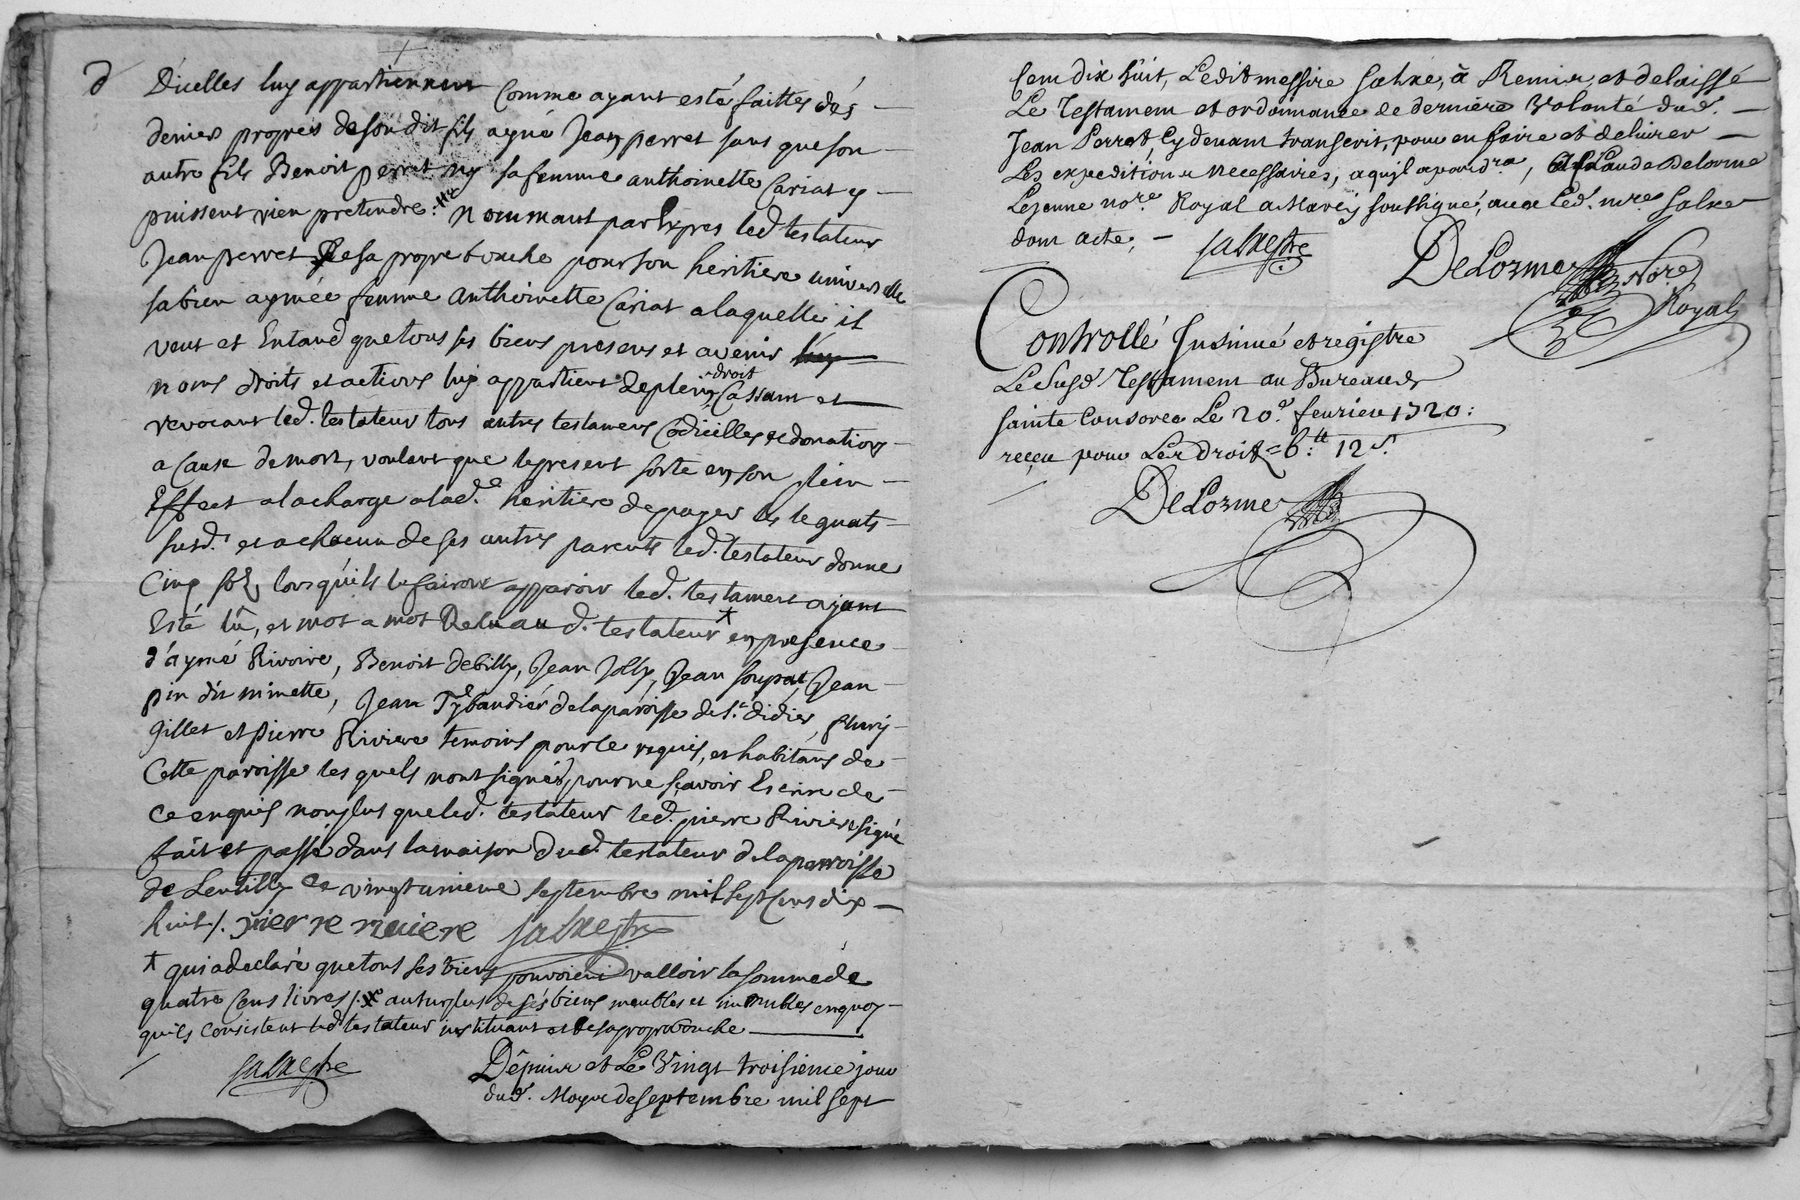 d'icelles luy appartiennent Comme ayant esté faittes dés
deniers propres de son dit fils ayné Jean perret sans que son
autre fils Benoit perret ny sa femme anthoinette Cariat y
puissent rien pretendre. nommant par Expres led. testateur
Jean perret de sa propre bouche pour son heritiere universelle
sa bien aymée femme anthoinette Cariat a laquelle il
veut et Entand que tous ses biens presens et avenir
noms droits et actions luy appartient de plein droit Cassant et
revocant led. testateur tous autres testamens Codicilles et donations
a Cause de mort, voulant que le present sorte en son plein
Effect a la charge a lad.e heritiere de payer les leguats
susd. et a chacun de ses autres parents led. testateur donne
Cinq sols lorsqu'ils le fairont apparoir led. testament ayant
Esté lû, et mot a mot Relu au d. testateur + en presence
d'aymé Rivoire, Benoit debilly, Jean Jolly, Jean soupat, Jean
pin dit minette, Jean Tybaudier de la paroisse de St. didier, fleury
gillet et pierre Riviere temoins pour ce requis, et habitans de
Cette paroisse les quels n'ont signés pour ne sçavoir Escrire de
ce enquis non plus que led. testateur led. pierre Riviere signé
fait et passé dans la maison dud. testateur de la parroisse
de Lentilly Ce vingt unieme septembre mil sept Cens dix
huit /. pierre riuiere salnestre
+ qui a declaré que tous ses biens pouvoient valloir la somme de
quatre Cens livres /. au surplus de sés biens meubles et immeubles en quoy
qu'ils consistent led. testateur instituant et de sa propre bouche
salnestre
Dépuis et Le Vingt troisieme jour
dud. Moys de septembre mil sept
Cent dix huit, Ledit messire salne, à Remis et delaissé
Le Testament et ordonnance de derniere Volonté dud.
Jean Perret, Cy devant transcrit, pour en faire et delivrer
Les expeditions necessaires, a qu'il apard.ra, à Claude Delorme
Lejeune no.re Royal a Marcy soussigné, avec Led. m.re salne
dont acte,
salnestre DeLorme No.re Royal
Controllé Insinué et registré
Le susd. Testament au Bureau de
sainte Consorce Le 20.e fevrier 1720:
reçu pour Les droits 6: tt 12 s.
DeLorme